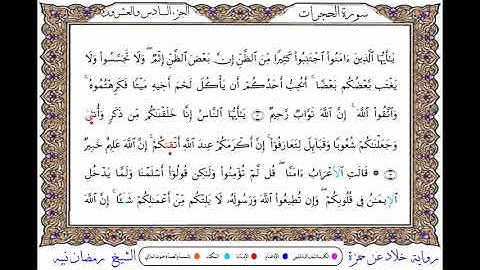 سورة الحجرات
الجزء السادس والعشرون
يَـٰٓأَيُّهَا ٱلَّذِينَ ءَامَنُوا۟ ٱجْتَنِبُوا۟ كَثِيرًا مِّنَ ٱلظَّنِّ إِنَّ بَعْضَ ٱلظَّنِّ إِثْمٌ ۖ وَلَا تَجَسَّسُوا۟ وَلَا
يَغْتَب بَّعْضُكُم بَعْضًا ۚ أَيُحِبُّ أَحَدُكُمْ أَن يَأْكُلَ لَحْمَ أَخِيهِ مَيْتًا فَكَرِهْتُمُوهُ ۚ
وَٱتَّقُوا۟ ٱللَّهَ ۚ إِنَّ ٱللَّهَ تَوَّابٌ رَّحِيمٌ يَـٰٓأَيُّهَا ٱلنَّاسُ إِنَّا خَلَقْنَـٰكُم مِّن ذَكَرٍ وَأُنثَىٰ
وَجَعَلْنَـٰكُمْ شُعُوبًا وَقَبَآئِلَ لِتَعَارَفُوٓا۟ ۚ إِنَّ أَكْرَمَكُمْ عِندَ ٱللَّهِ أَتْقَىٰكُمْ ۚ إِنَّ ٱللَّهَ عَلِيمٌ خَبِيرٌ
قَالَتِ ٱلْأَعْرَابُ ءَامَنَّا ۖ قُل لَّمْ تُؤْمِنُوا۟ وَلَـٰكِن قُولُوٓا۟ أَسْلَمْنَا وَلَمَّا يَدْخُلِ
ٱلْإِيمَـٰنُ فِى قُلُوبِكُمْ ۖ وَإِن تُطِيعُوا۟ ٱللَّهَ وَرَسُولَهُۥ لَا يَلِتْكُم مِّنْ أَعْمَـٰلِكُمْ شَيْـًٔا ۚ إِنَّ ٱللَّهَ
رواية خلاد عن حمزة
الشيخ رمضان نبيه